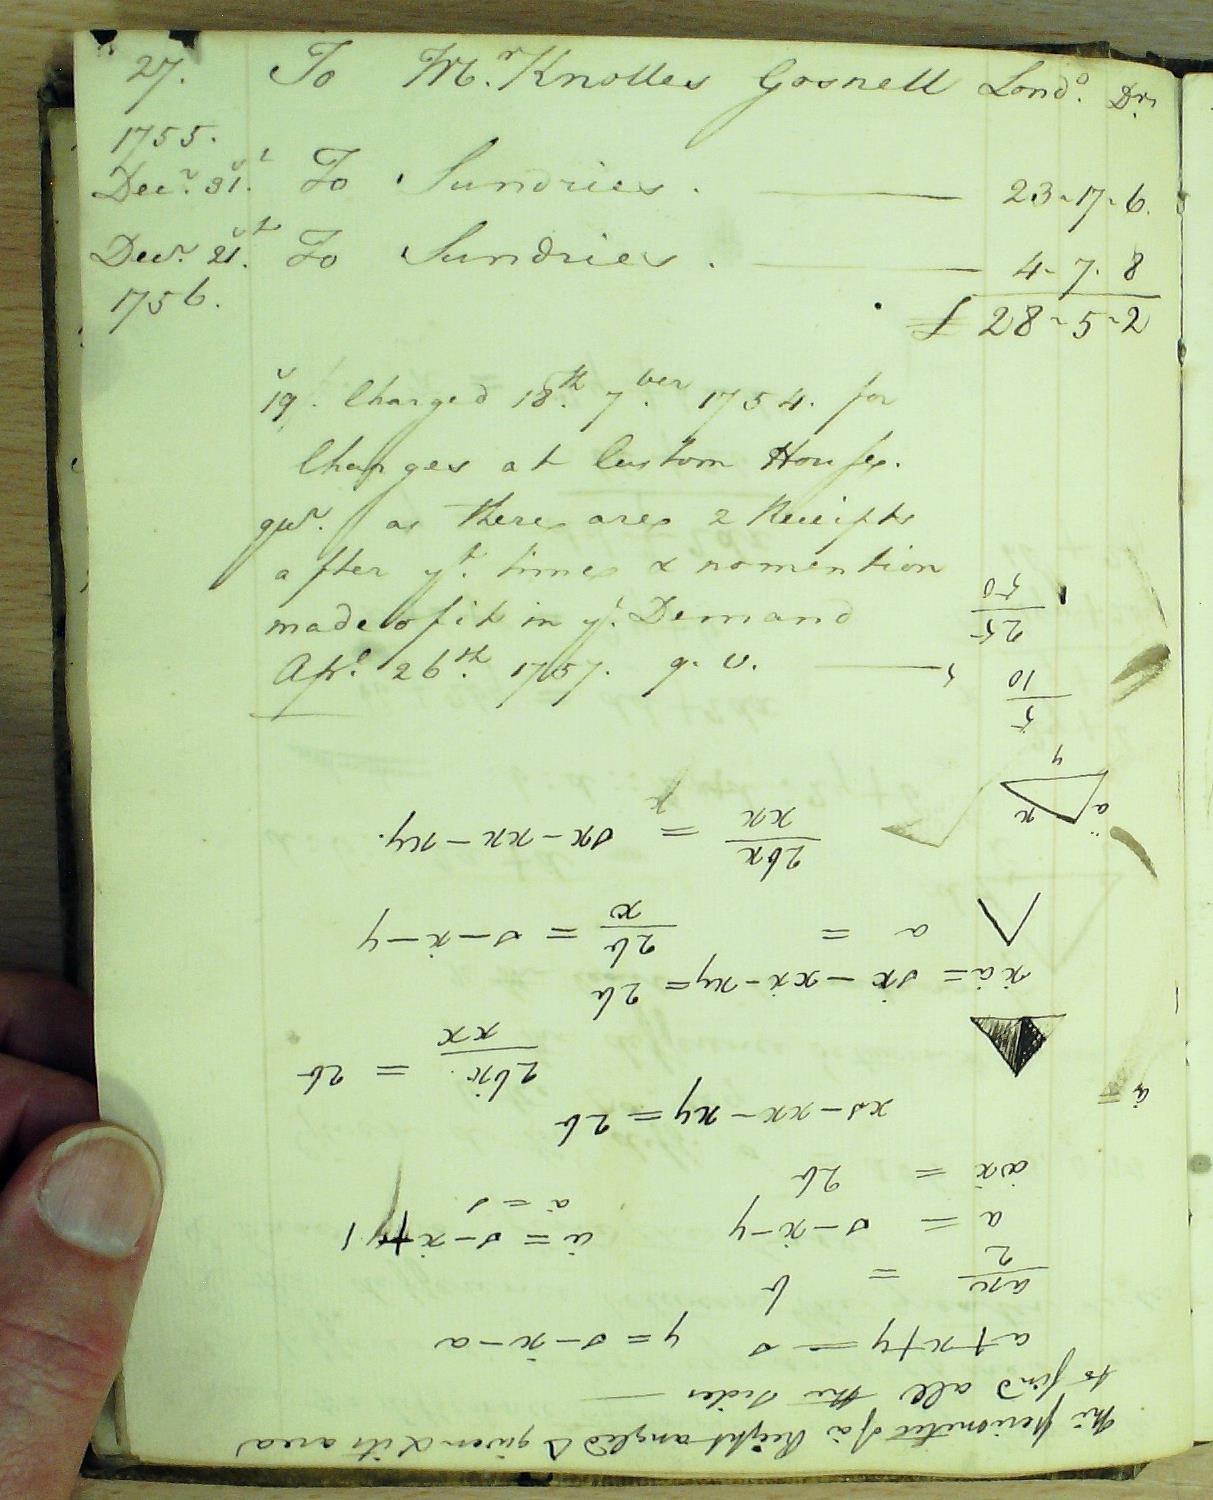 27. To Mr. Knolles Gosnell Londo. Dr.
1755.
Decr. 31st. To Sundries. 23-17-6.
Decr. 21st. To Sundries. 4-7-8
1756.
£ 28-5-2
19 Charged 18th. 7ber 1754. for
Charges at Custom House.
qur. as there are 2 Receipts
after yt. time & no mention
made of it in ye. Demand
Apl. 26th. 1757. q.v.
The perimeter of a Right angled Δ given & its area
to find all the sides
a+x+y = s y = s-x-a
ax/2 = b
a = s-x-y a = s-x+y
a = s
ax = 2b
xs-xx-xy = 2b
2bx/xx = 2b
xa = sx-xx-xy = 2b
a = 2b/x = s-x-y
2bx/xx = sx-xx-xy.
a x y
5/10
25/50